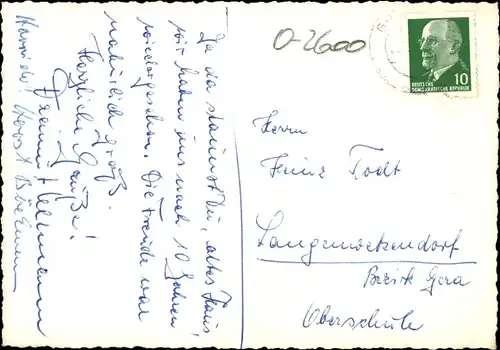 Ja da staunst Du, altes Haus!
Wir haben uns nach 10 Jahren
wiedergesehen. Die Freude war
natürlich groß.
Herzliche Grüße!
O-2600
10
DEUTSCHE
DEMOKRATISCHE REPUBLIK
Herrn
Heinz Todt
Langenwetzendorf
Bezirk Gera
Oberschule